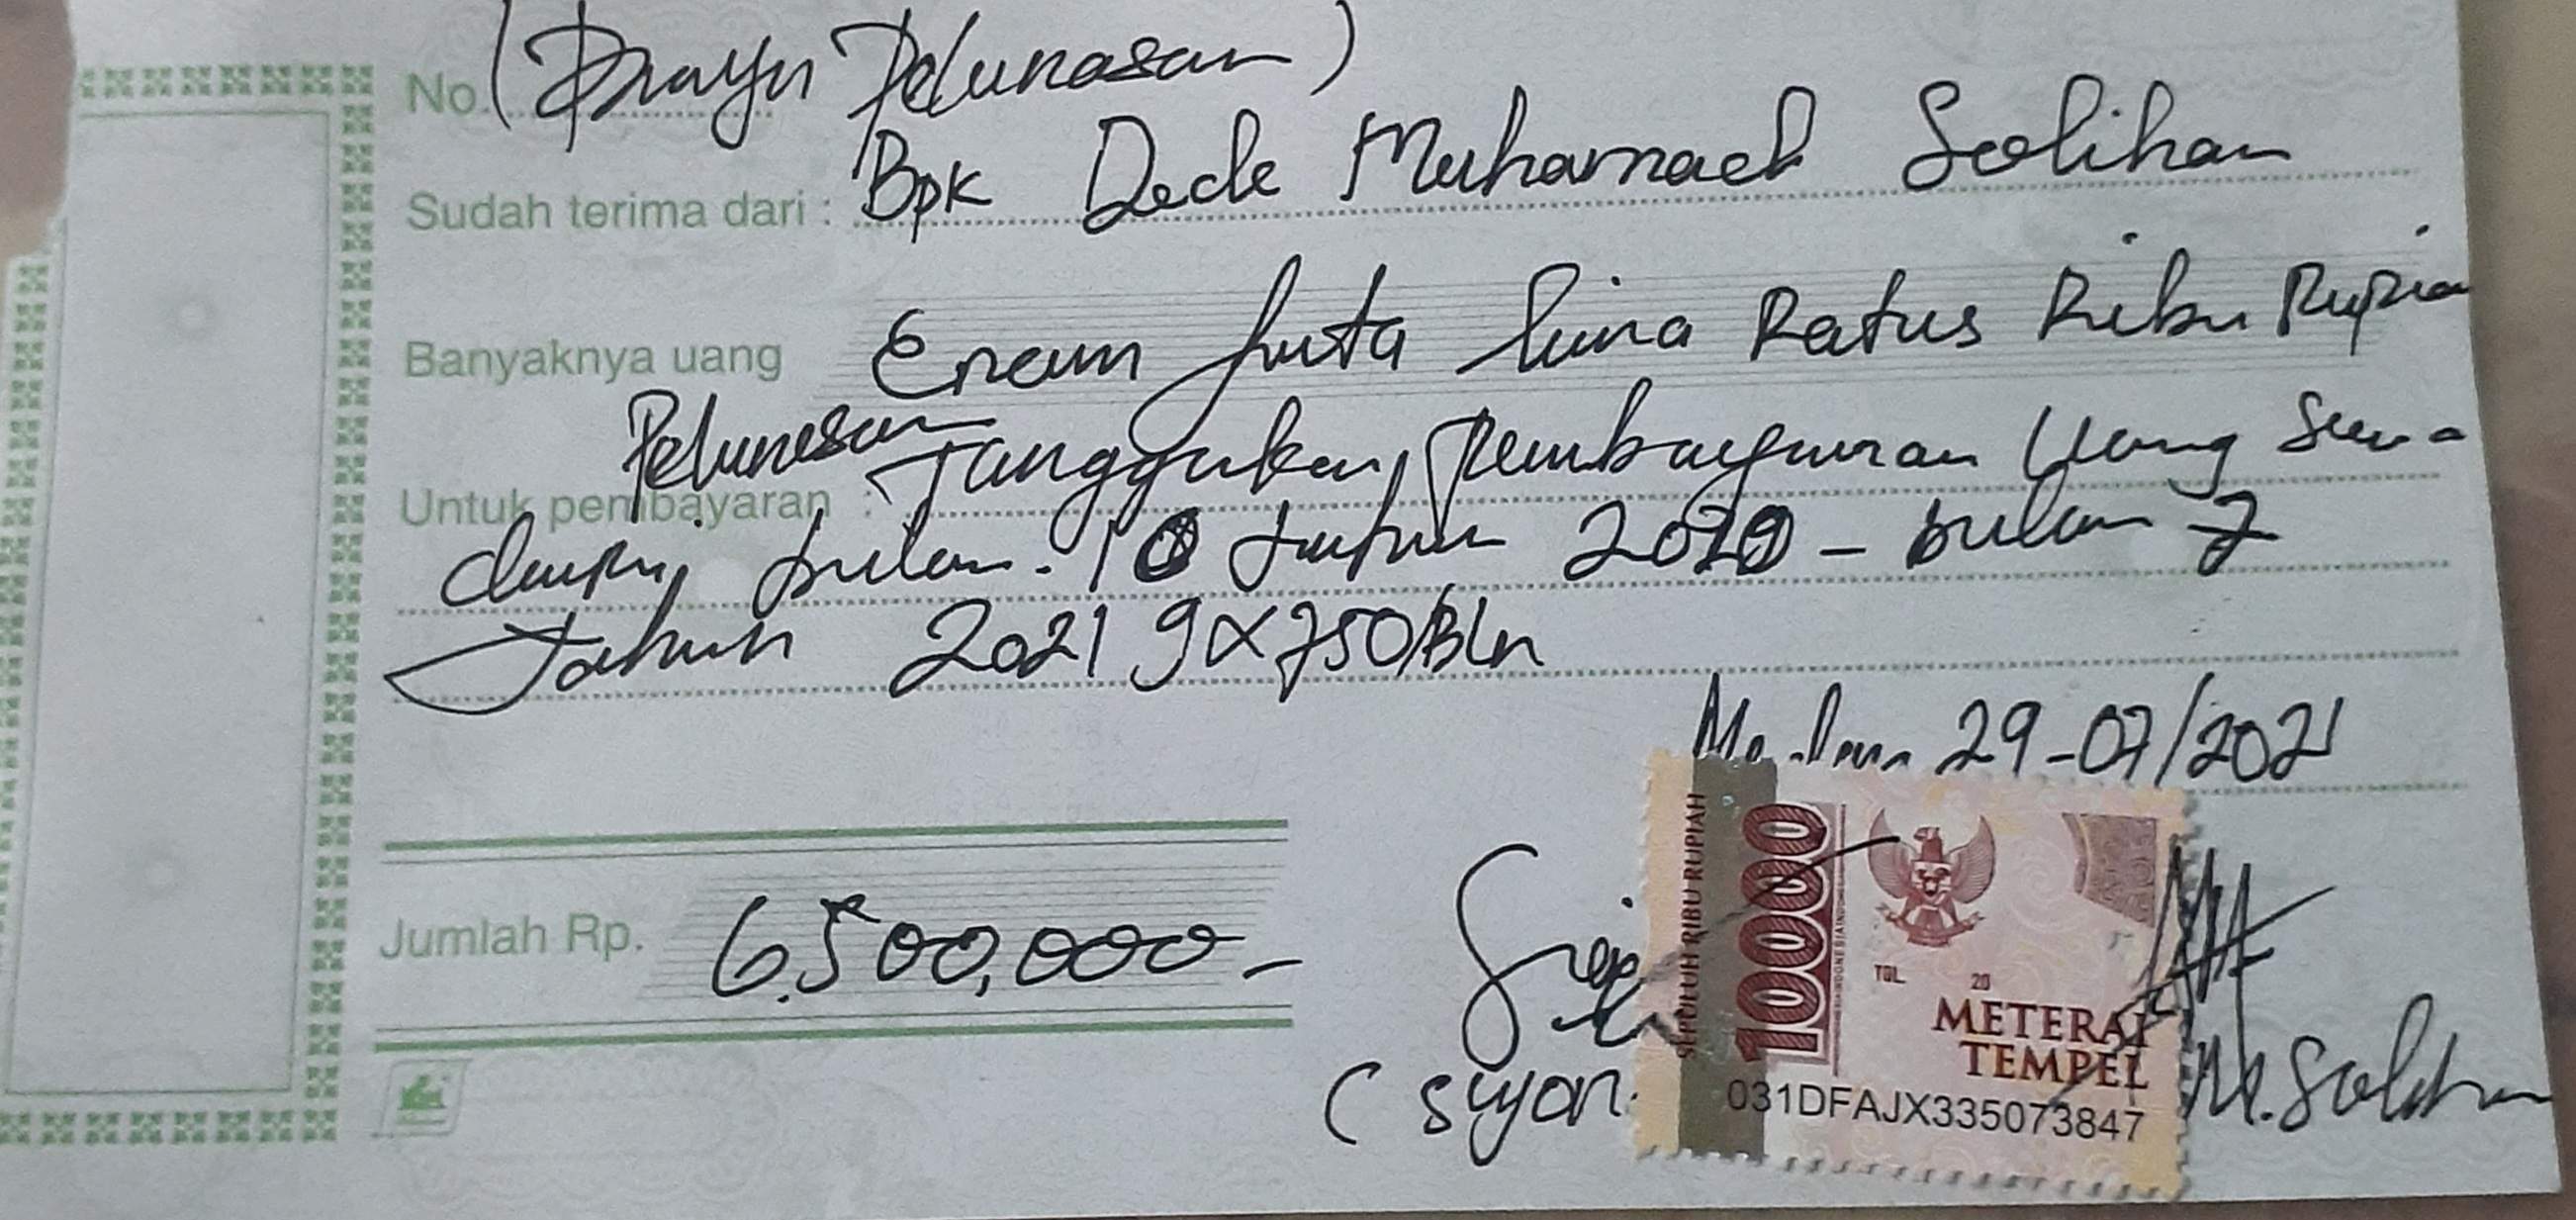 No. ( Pelunasan )
Sudah terima dari : Bpk Dede Muhamad Solihan
Banyaknya uang Enam Juta lima Ratus Ribu Rupia
Pelunasan
Untuk pembayaran : Tanggukan Pembayaran Uang Sewa
dari bulan. 10 tahun 2020 - bulan 7
Tahun 2021 9x750/Bln
29-07/2021
Jumlah Rp. 6.500,000-
SEPULUH RIBU RUPIAH
10000
TGL. 20
METERAI
TEMPEL
031DFAJX335073847
( Siyon
M. Solihan